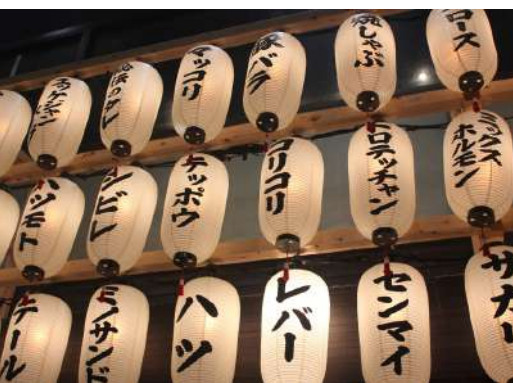 ユッケジャン
マッコリ
豚バラ
しゃぶ
ロース
ハツモト
シビレ
テッポウ
コリコリ
コロテッチャン
ミックス
ホルモン
テール
ミノサンド
ハツ
レバー
センマイ
サガリ